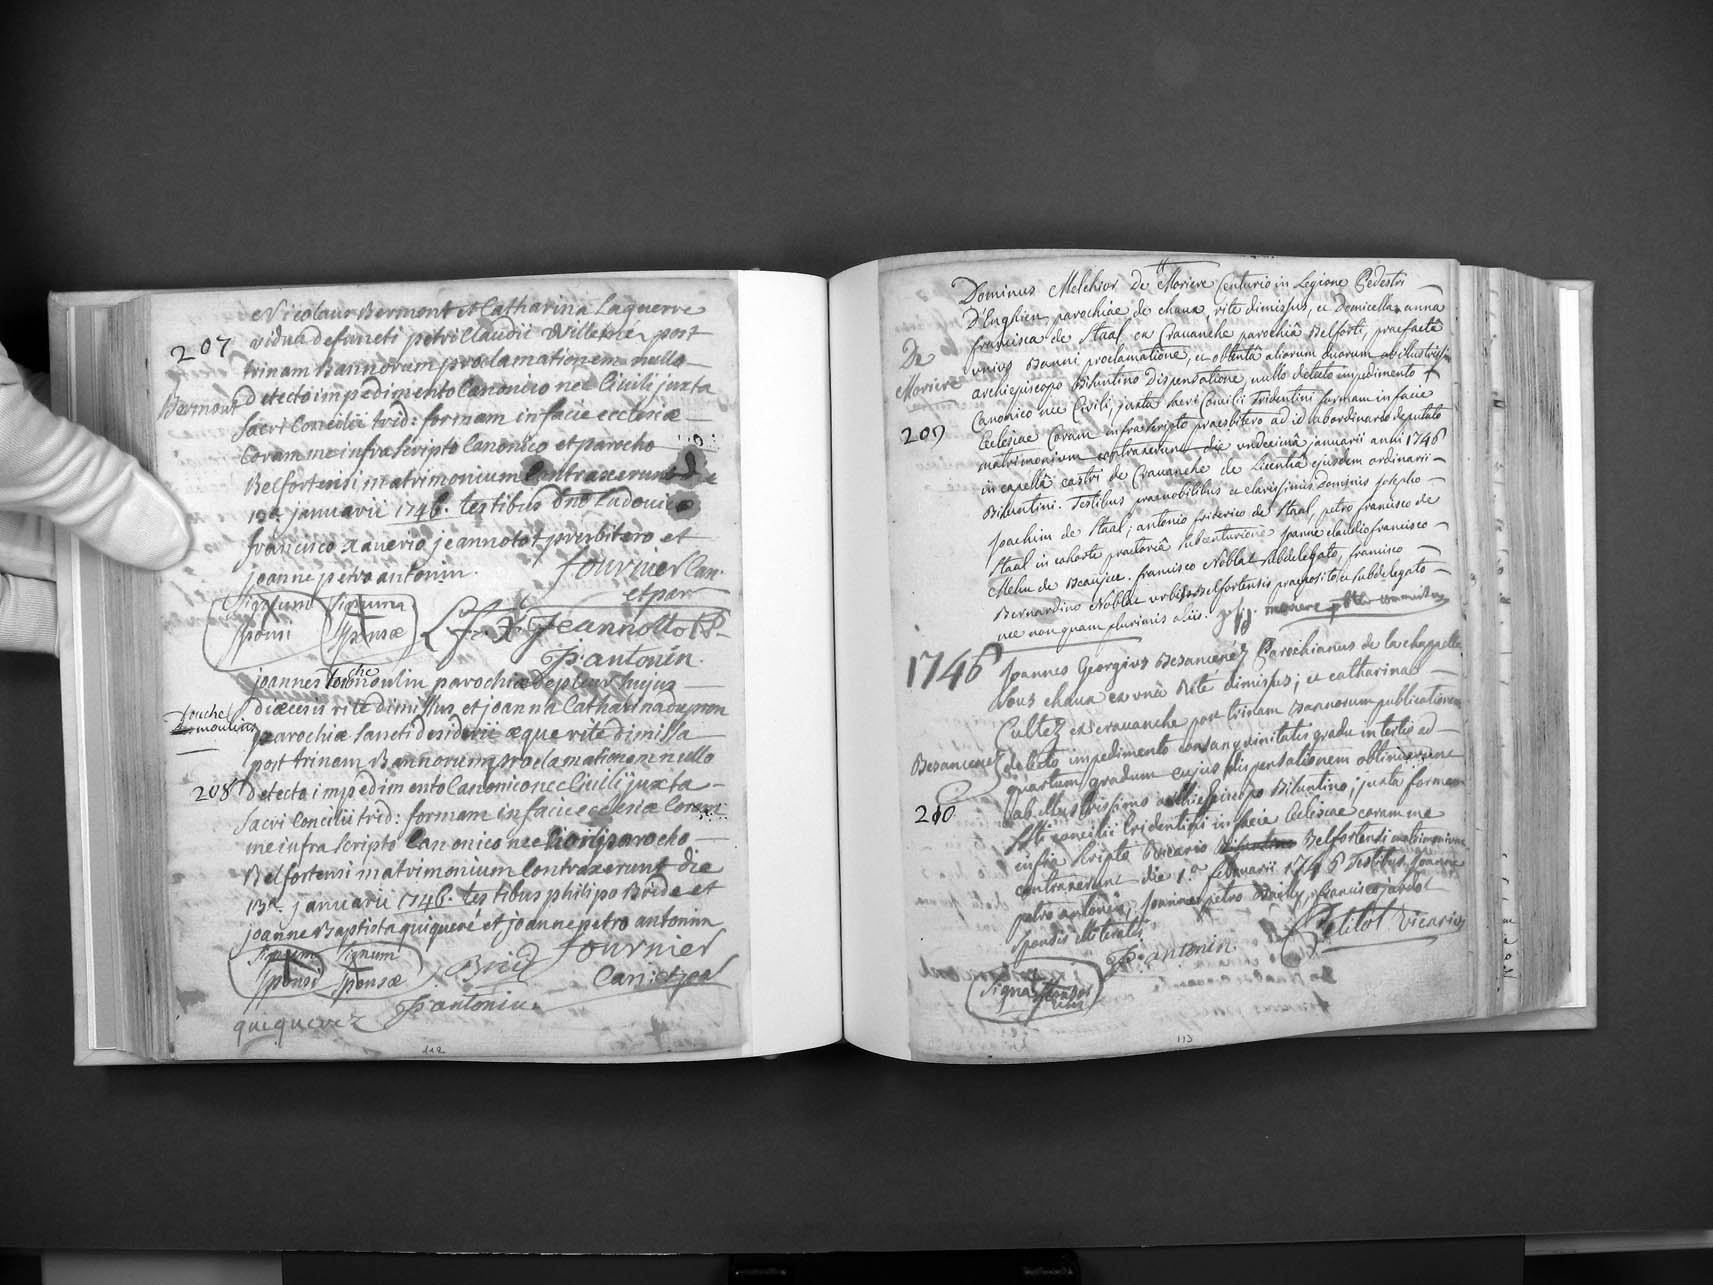 207
Bermont
Nicolaus Bermont et Catharina Laguerre
vidua defuncti petri Claudii Willemer post
trinam Bannorum proclamationem nullo
detecto impedimento Canonico nec Civili juxta
Sacri Concilii trid: formam in facie ecclesiæ
Coram me infra Scripto Canonico et parocho
Belfortensi matrimonium Contraxerunt die
13a. januarii 1746. testibus dno Ludovico
francisco xaverio jeannotot presbitero et
joanne petro antonin.
fournier Can.
et par
Signum Sponsi
Signum Sponsæ
L. f. X. Jeannotto P.
J p. antonin.
touche
moulin
208
joannes touchemoulin parochiæ
diæcesis rite dimissus, et joanna Catharina dupron
parochiæ Sancti desiderii æque rite dimissa
post trinam Bannorum proclamationem nullo
detecto impedimento Canonico nec Civili juxta
Sacri Concilii trid: formam in facie ecclesiæ Coram
me infra Scripto Canonico nec parocho
Belfortensi matrimonium Contraxerunt die
13a. januarii 1746. testibus philipo Bride et
joanne Baptista quiqueré et joanne petro antonin
Signum Sponsi
Signum Sponsæ
Brid
fournier
Can: et par
J p antonin.
quiquerez
112
De
Moriere
209
Dominus Melchior de Moriere Centurio in Legione Pedestri
D'Enghien parochiae de chaux, rite dimissus, et Domicella anna
francisca de Staal ex Cravanche parochiâ Belforti, praefactâ
unius Banni proclamatione, et obtentâ aliorum duorum ab illustrissimo
archiepiscopo Bisuntino Dispensatione, nullo detecto impedimento
Canonico nec Civili juxta sacri Concilii Tridentini formam in facie
Ecclesiae Coram infrascripto praesbitero ad id ab ordinario deputato
matrimonium contraxerunt die undecimâ januarii anni 1746
in capellâ castri de Cravanche de Licentiâ ejusdem ordinarii
Bisuntini. Testibus praenobilibus et clarissimis dominis josepho
Joachim de Staal, antonio friderico de Staal, petro francisco de
Staal in cohorte praetoriâ subcenturione joanne claudio francisco
Mehu de Beaujeu. francisco Noblat subdelegato, francisco
Bernardino Noblat urbis Belfortensis praeposito et subdelegato
nec non quam plurimis aliis.
1746
Besancenez
210
Joannes Georgius Besancenez Parochianus de lachapelle
Sous chaux ex unâ Rite dimissus; et catharina
Cultez ex cravanche post trinam Bannorum publicationem
detecto impedimento consanguinitatis gradu in tertio ad
quartum gradum cujus dispensationem obtinuerunt
ab illustrissimo archiepiscopo Bisuntino; juxta formam
Sti concilii Tridentini in facie Ecclesiae coram me
infra Scripto Vicario Belfortensi matrimonium
contraxerunt die 1.a februarii 1746 Testibus Joanne
petro antonin; joanne petro Bailly, francisco jardot
Sponsis illiteratis
J p. antonin.
Petitot vicarius
Signa
113